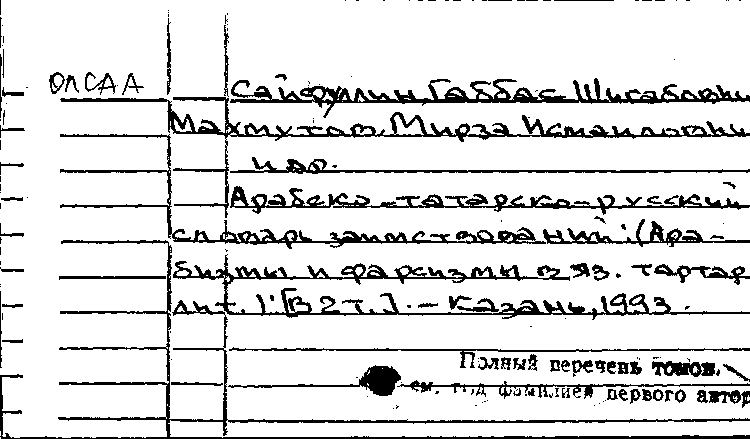 ОЛСАА
Сайфуллин, Габбас Шигабович
Махмутов, Мирза Исмаилович
и др.
Арабско-татарско-русский
словарь заимствований: (Ара-
бизмы и фарсизмы в яз. тартар
лит.): [В 2 т.]. - Казань, 1993.
Полный перечень томов.
см. под фамилией первого автор